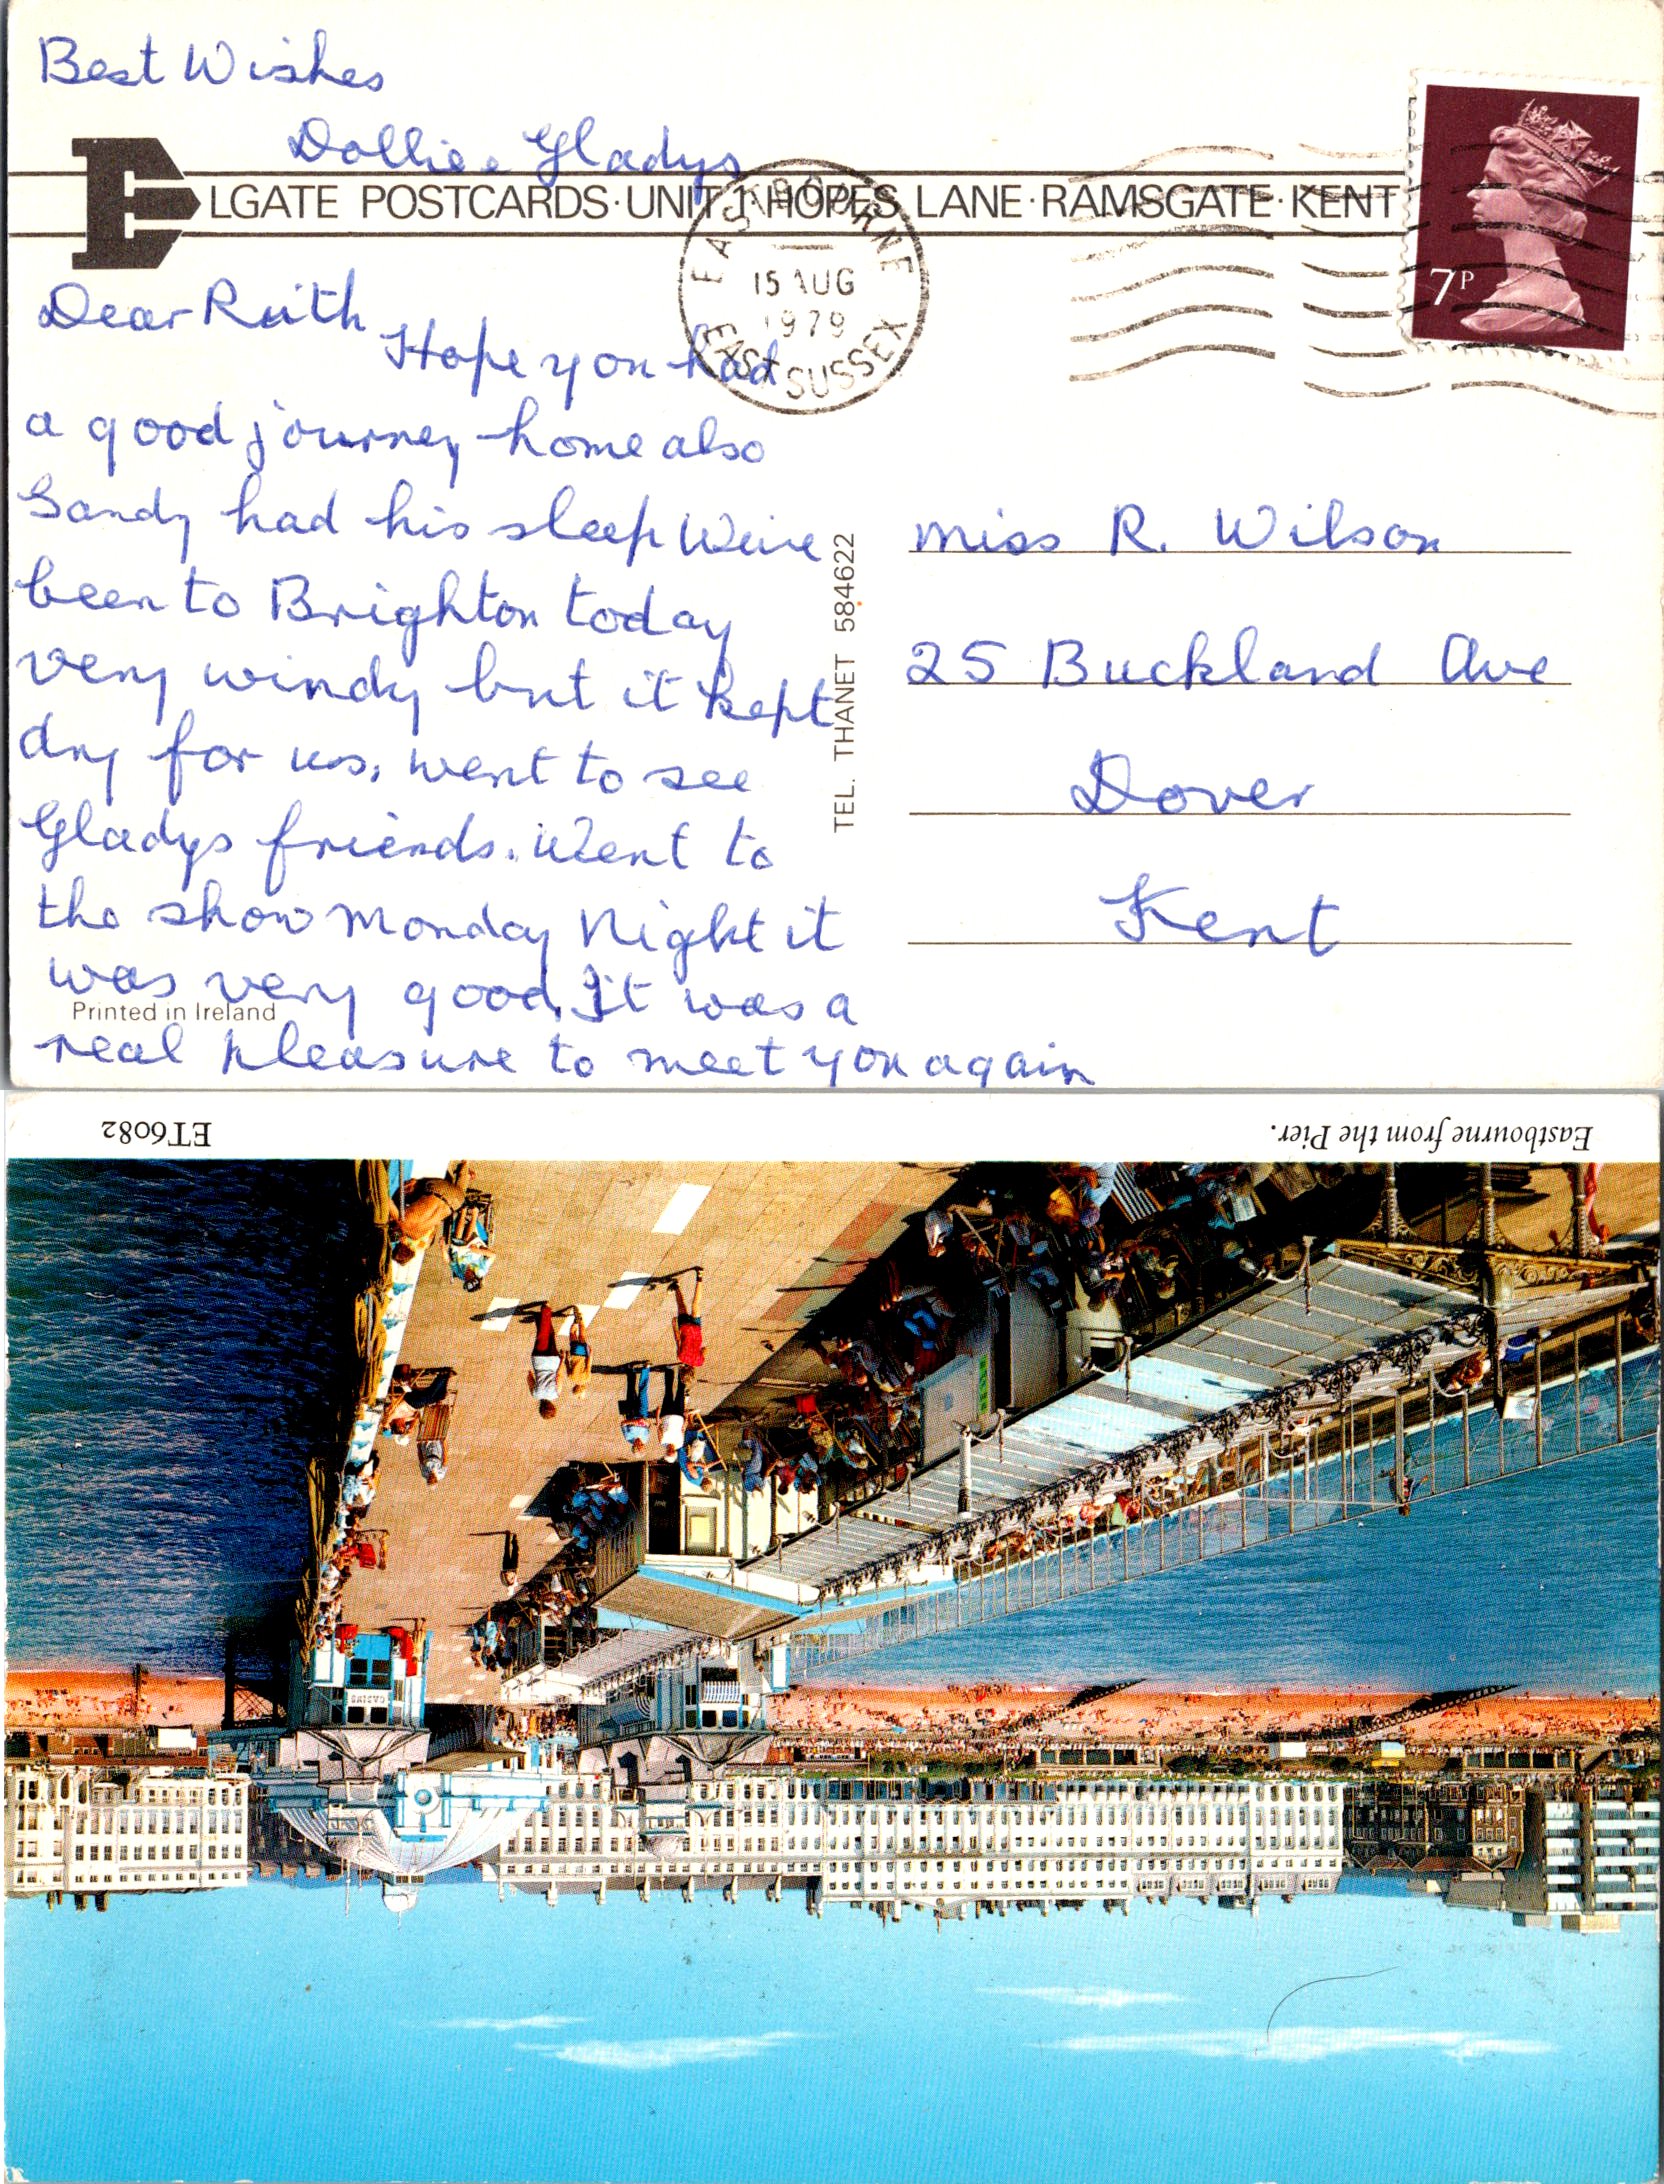 Best Wishes
Dollie & Gladys
ELGATE POSTCARDS·UNIT 1·HOPES LANE·RAMSGATE·KENT
EASTBOURNE
15 AUG
1979
EAST SUSSEX
7P
Dear Ruth
Hope you had
a good journey home also
Sandy had his sleep Weive
been to Brighton today
very windy but it kept
dry for us, went to see
Gladys friends. Went to
the show Monday Night it
was very good, It was a
real pleasure to meet you again
Printed in Ireland
TEL. THANET 584622
Miss R. Wilson
25 Buckland Ave
Dover
Kent
Eastbourne from the Pier.
ET6082
CASINO